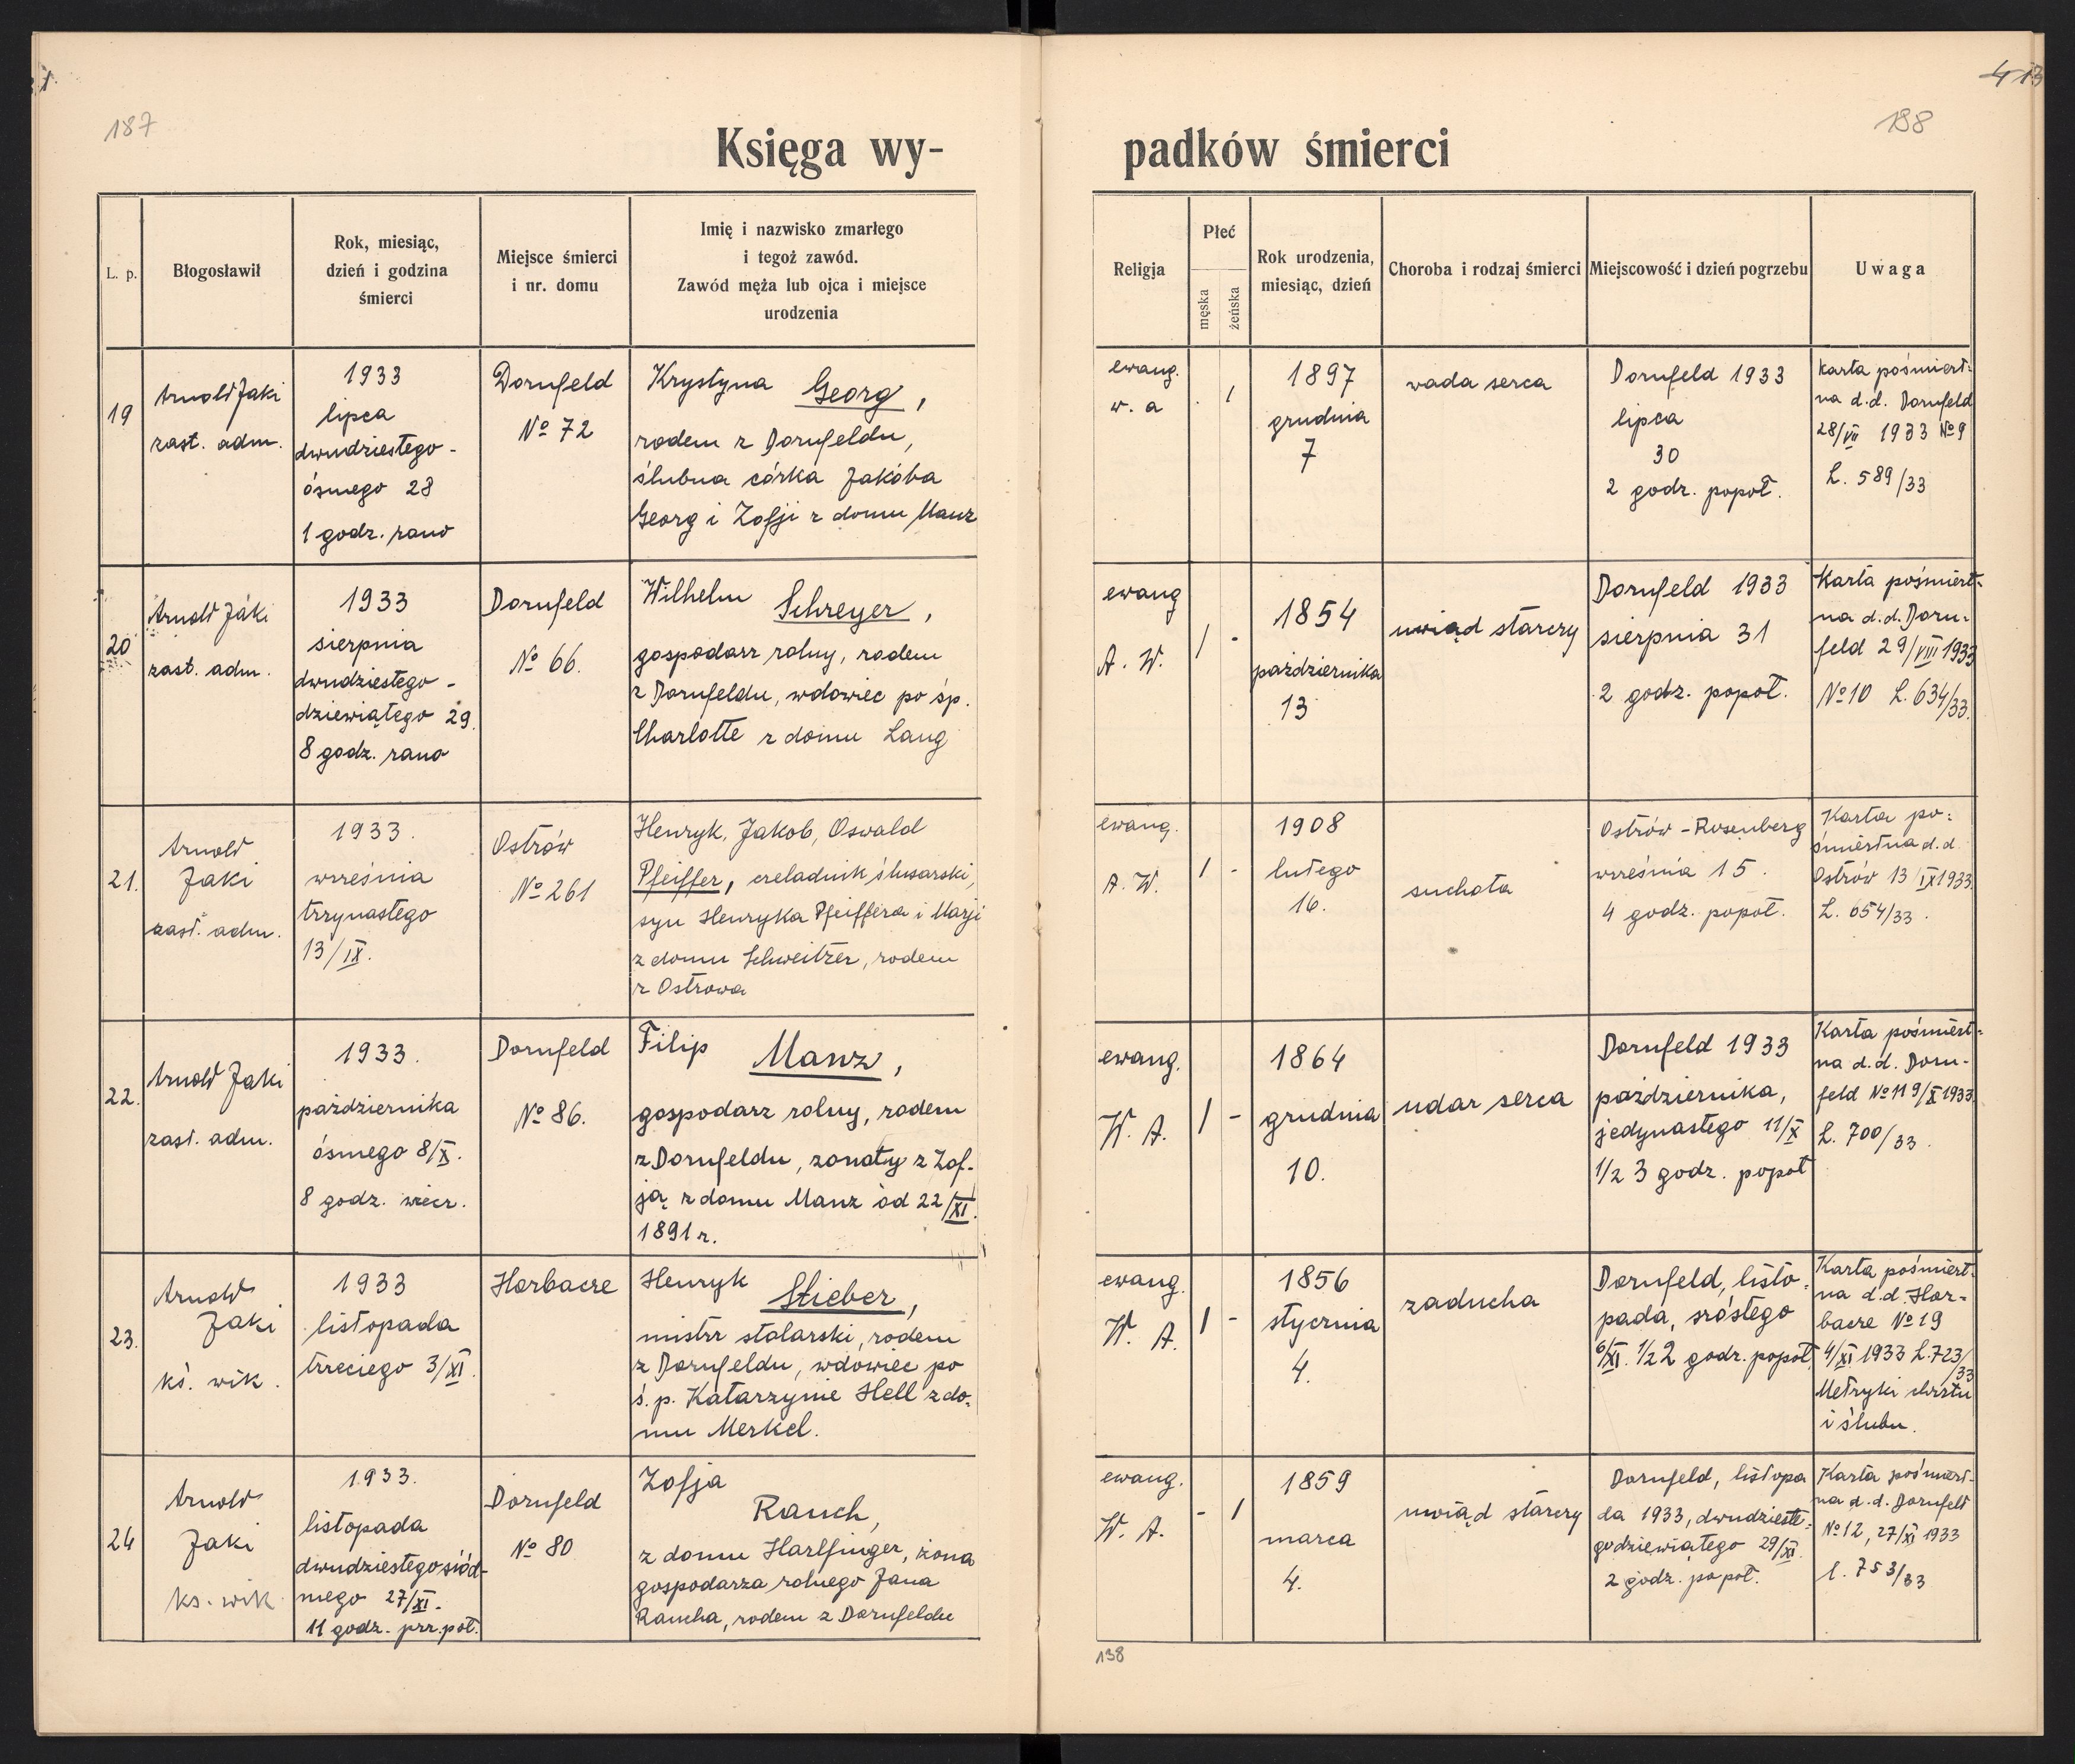 187
188
413
Księga wy-
padków śmierci
L. p.
Błogosławił
Rok, miesiąc,
dzień i godzina
śmierci
Miejsce śmierci
i nr. domu
Imię i nazwisko zmarłego
i tegoż zawód.
Zawód męża lub ojca i miejsce
urodzenia
Religja
Płeć
męska
żeńska
Rok urodzenia,
miesiąc, dzień
Choroba i rodzaj śmierci
Miejscowość i dzień pogrzebu
Uwaga
19
Arnold Jaki
zast. adm.
1933
lipca
dwudziestego-
ósmego 28
1 godz. rano
Dornfeld
№ 72
Krystyna Georg,
rodem z Dornfeldu,
ślubna córka Jakóba
Georg i Zofji z domu Manz
ewang.
w. a
. /
1897
grudnia
7
wada serca
Dornfeld 1933
lipca
30
2 godz. popoł.
Karta pośmiert-
na d.d. Dornfeld
28/VII 1933 № 9
L. 589/33
20
Arnold Jaki
zast. adm.
1933
sierpnia
dwudziestego-
dziewiątego 29.
8 godz. rano
Dornfeld
№ 66.
Wilhelm Schreyer,
gospodarz rolny, rodem
z Dornfeldu, wdowiec po śp.
Charlotte z domu Lang
ewang
A. W.
/ -
1854
października
13
uwiąd starczy
Dornfeld 1933
sierpnia 31
2 godz. popoł.
Karta pośmiert-
na d.d. Dorn-
feld 29/VIII 1933
№ 10 L. 634/33.
21.
Arnold
Jaki
zast. adm.
1933.
września
trzynastego
13/IX.
Ostrów
№ 261
Henryk, Jakob, Oswald
Pfeiffer, czeladnik ślusarski,
syn Henryka Pfeiffera i Marji
z domu Schweitzer, rodem
z Ostrowa
ewang.
A. W.
/ -
1908
lutego
16.
suchota
Ostrów - Rosenberg
września 15.
4 godz. popoł.
Karta po-
śmiertna d.d.
Ostrów 13 IX 1933.
L. 654/33.
22.
Arnold Jaki
zast. adm.
1933.
października
ósmego 8/X.
8 godz. wiecz.
Dornfeld
№ 86.
Filip Manz,
gospodarz rolny, rodem
z Dornfeldu, żonaty z Zof-
ją z domu Manz od 22/XI.
1891 r.
ewang.
W. A.
/ -
1864
grudnia
10.
udar serca
Dornfeld 1933
października,
jedynastego 11/X
1/2 3 godz. popoł
Karta pośmiert-
na d.d. Dorn-
feld № 11 9/X 1933
L. 700/33.
23.
Arnold
Jaki
ks. wik.
1933
listopada
trzeciego 3/XI.
Horbacze
Henryk Stieber,
mistrz stolarski, rodem
z Dornfeldu, wdowiec po
ś. p. Katarzynie Hell z do-
mu Merkel.
ewang.
W. A.
/ -
1856
stycznia
4.
zaducha
Dornfeld, listo-
pada, szóstego
6/XI. 1/2 2 godz. popoł.
Karta pośmiert-
na d.d. Hor-
bacze № 19
4/XI 1933 L. 723/33
Metryki chrztu
i ślubu.
24
Arnold
Jaki
ks. wik
1933.
listopada
dwudziestego siód-
mego 27/XI.
11 godz. prz. poł.
Dornfeld
№ 80
Zofja
Rauch,
z domu Harlfinger, żona
gospodarza rolnego Jana
Raucha, rodem z Dornfeldu
ewang.
W. A.
- /
1859
marca
4.
uwiąd starczy
Dornfeld, listopa
da 1933, dwudzieste-
godziewiątego 29/XI.
2 godz. popoł.
Karta pośmiert-
na d.d. Dornfeld
№ 12, 27/XI 1933
l. 753/33
138